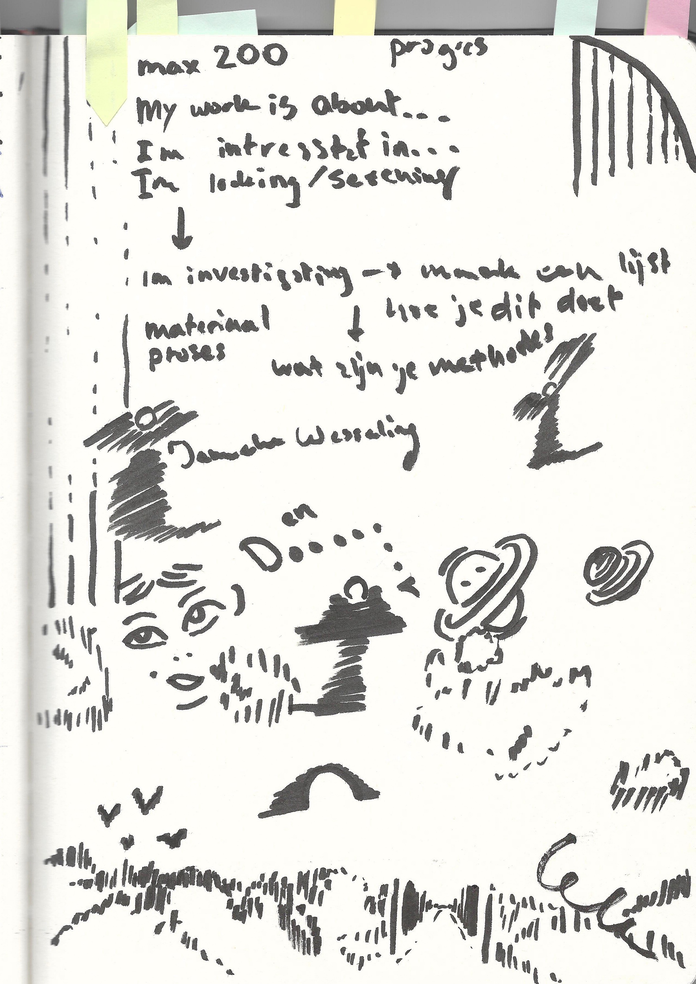 max 200
progres
My work is about...
I'm intresstet in...
I'm looking/serching
Im investigating → maak een lijst
hoe je dit doet
materiaal
proses
wat zijn je methodes
Janneke Wesseling
en
Do.....